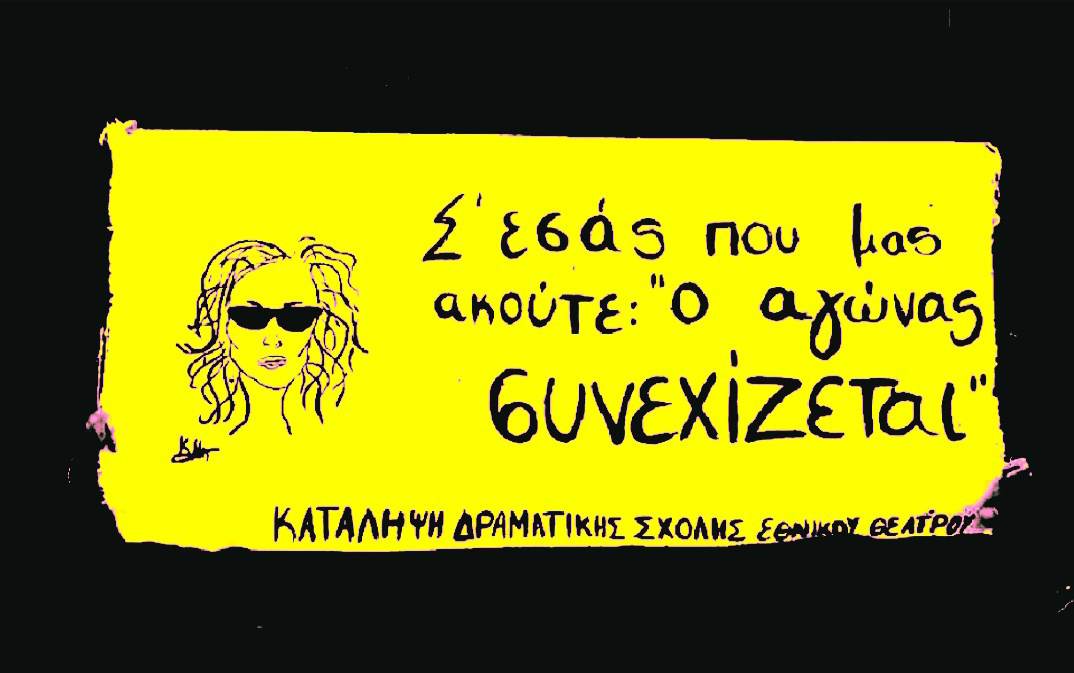 Σ' εσάς που μας
ακούτε: "Ο αγώνας
συνεχίζεται"
ΚΑΤΑΛΗΨΗ ΔΡΑΜΑΤΙΚΗΣ ΣΧΟΛΗΣ ΕΘΝΙΚΟΥ ΘΕΑΤΡΟΥ